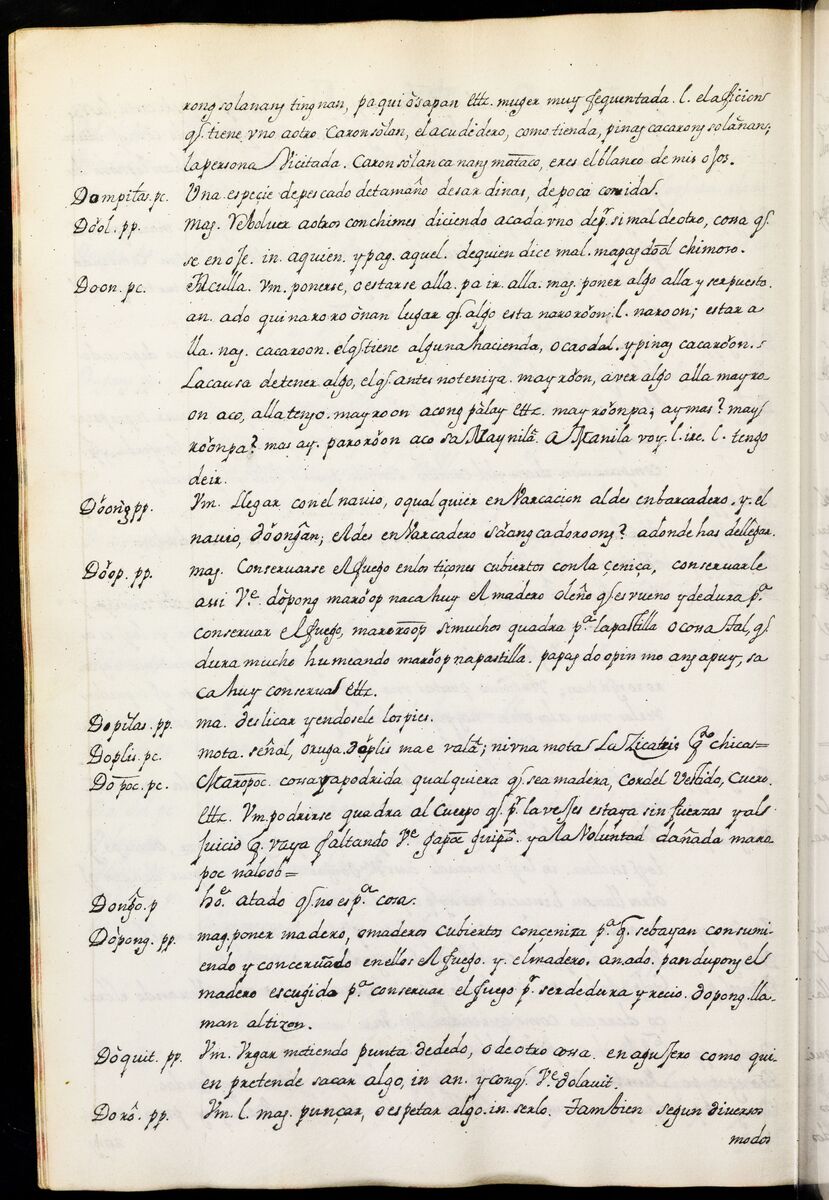 rong solanang tingnan, pa qui òsapan ettz. muger muy fequentada. l. el afficion
qȝ. tiene vno aotro. Caron sölan, el acudedero, como tienda, pinag cacarong solānan;
la persona Vicitada. Caron sölan ca nang mataco, eres el blanco de mis ojos.
Dampitas. pc. Una espeçie de pescado detamaño desardinas, de poca comidas.
Döol. pp. mag. Rebolver aotros con chimes diciendo acada vno de pr si mal de otro, cossa qȝ.
se en oje. in. aquien. y pag. aquel. de quien dice mal. mapag dool chimoso.
Doon. pc. Alculla. Vm. ponerse, o estarse alla. pa ir. alla. mag. poner algo alla y ser puesto.
an. ado qui naroroōnan lugar qȝ algo esta naroröon; l. naroon; estar a
lla. nag. cacaroon. el qȝ tiene alguna hacienda, o caudal. y pinag cacaröon.
La causa de tener algo, el qȝ. antes no teniya. may röon, aver algo alla may ro-
on aco, alla tengo. may roon acong pàlay ettz. may röonpa; ay mas? may
röonpa? mas ay. paroröon aco sa Maynilâ. a Manila voy. l. ire. l. tengo
de ir.
Döong pp. Vm. Llegar con el navio, o qual quier enbarcacion al desenbarcadero. y. el
navio, döongan; el desenbarcadero säang cadoroong? adonde has dellegar.
Döop. pp. mag. Conseruarse el fuego enlos tiçones cubiertos con la çeniça, conseruarle
aui Ve. dòpong maröop na cahuy el madero oleño qȝ es vueno y de dura pa.
conseruar el fuego, maroroop si muchos quadra pa. la pastilla o cossa tal, qȝ
dura mucho humeando maröop na pastilla. papag doopin mo ang apuy, sa
cahuy conserual ettz.
Dopilas. pp. ma. deslicar yendosele los pies.
Doplis. pc. mota. señal, oruga. doplis ma e valat; ni vna mota. La Zicatris quo chicas=
Dopoc. pc. Maropoc. cossa ya podrida qualquiera qȝ sea madera, cordel Vestido, Cuero.
ettz. Vm. podrirse quadra al Cuerpo qȝ. pr. la vejes estaya sin fuerzas y al
juicio q. vaya faltando Ve. gapoc guipo. y ala Voluntad dañada maro
poc na loob=
Dongô. p hoe. atado qȝ. no es pa. cosa.
Dòpong. pp. mag. poner madero, o maderos cubiertos con çeniza pa. q. se bayan consumi-
endo y concervando en ellos el fuego. y. el madero. an. ado. pandupong el
madero escugido pa. conseruar el fuego pr. ser de dura y recio. dopong lla-
man al tizon.
Dòquit. pp. Vm. Vrgar metiendo punta de dedo, o de otro cossa. en agujero como qui-
en pretende sacar algo, in an. y cong. Ve dolauit.
Dorô. pp. Vm. l. mag. punçar, o espetar algo. in. serlo. tambien segun diversos
modos